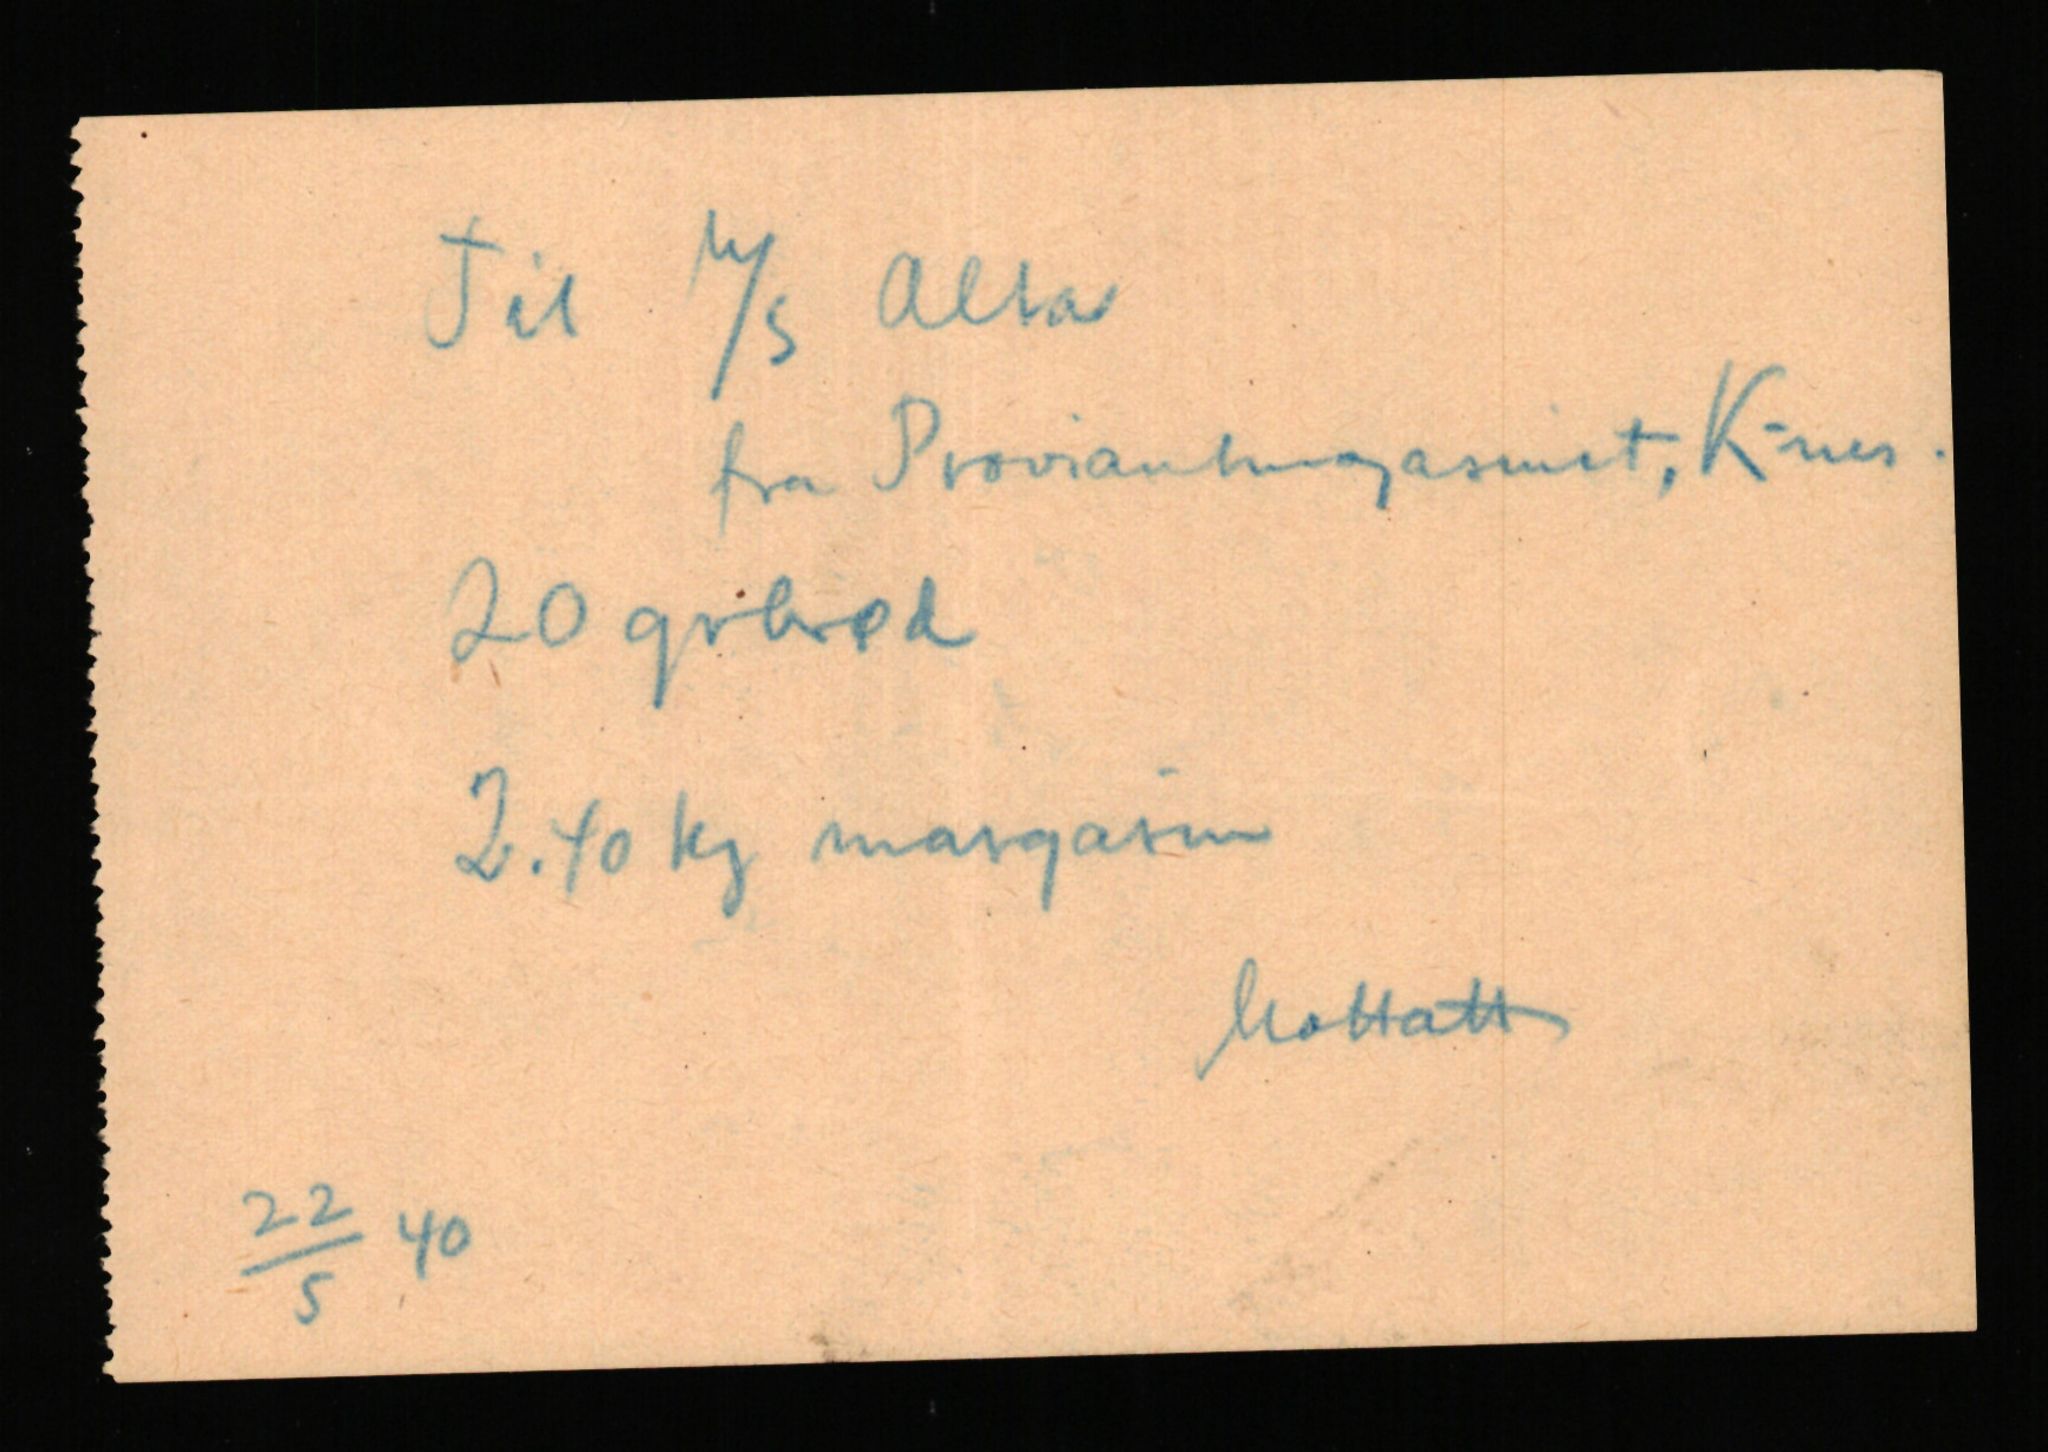 Til M/S Alta
fra Proviantmagasinet, K-nes.
20 grbrød
2.40 kg margarin
Mottatt
22/5 40